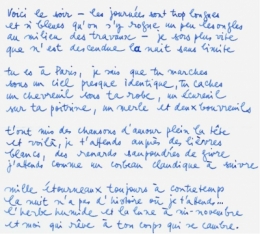 Voici le soir - les journées sont trop longues
et si bleues qu'on s'y rogne un peu les ongles
au milieu des travaux - je sors plus vite
que n'est descendue la nuit sans limite
tu es à Paris, je sais que tu marches
sous un ciel presque identique, tu caches
un chevreuil sous ta robe, un écureuil
sur ta poitrine, un merle et deux bouvreuils
t'ont mis des chansons d'amour plein la tête
et voilà, je t'attends auprès des lièvres
blancs, des renards saupoudrés de givre
j'attends comme un corbeau claudique à suivre
mille étourneaux toujours à contretemps
la nuit n'a pas d'histoire où je t'attends...
l'herbe humide et la lune à mi-novembre
et moi qui rêve à ton corps qui se cambre.